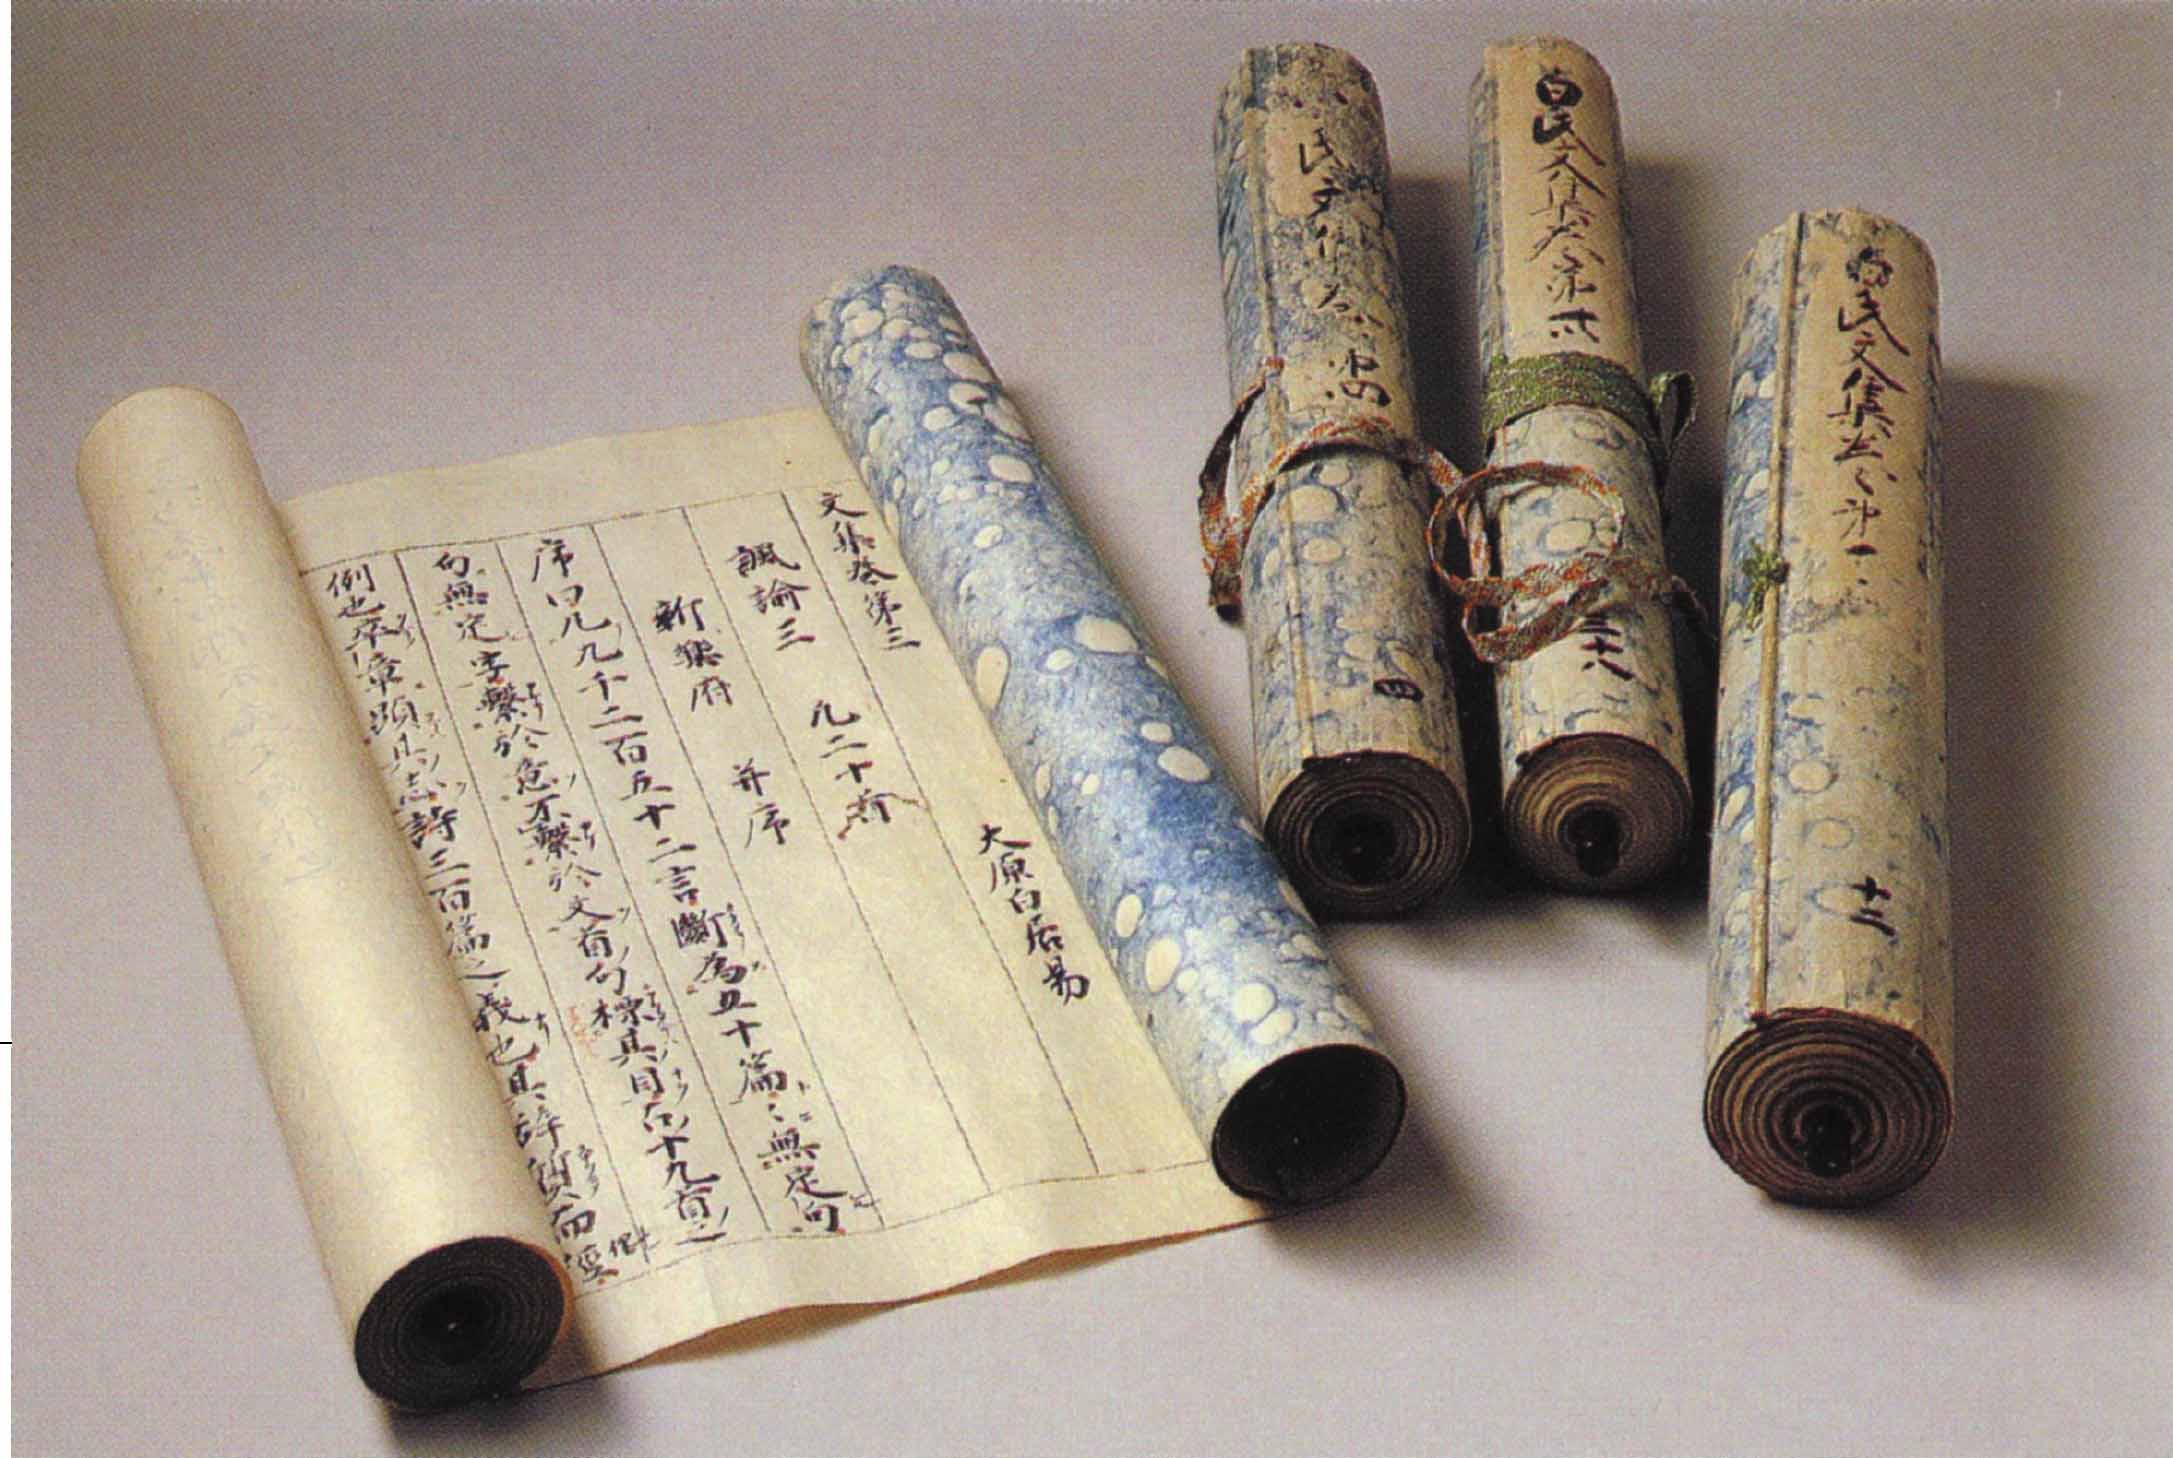 文集巻第三 大原白居易
諷諭三 凡二十首
新樂府 并序
序曰凡九千二百五十二言斷為五十篇〻無定句
句無定字繫於意不繫於文首句標其目古十九首之
例也卒章顯其志詩三百篇之義也其辞質而徑
氏文集巻第四
四
白氏文集巻第卅
三十八
白氏文集巻第十二
十二